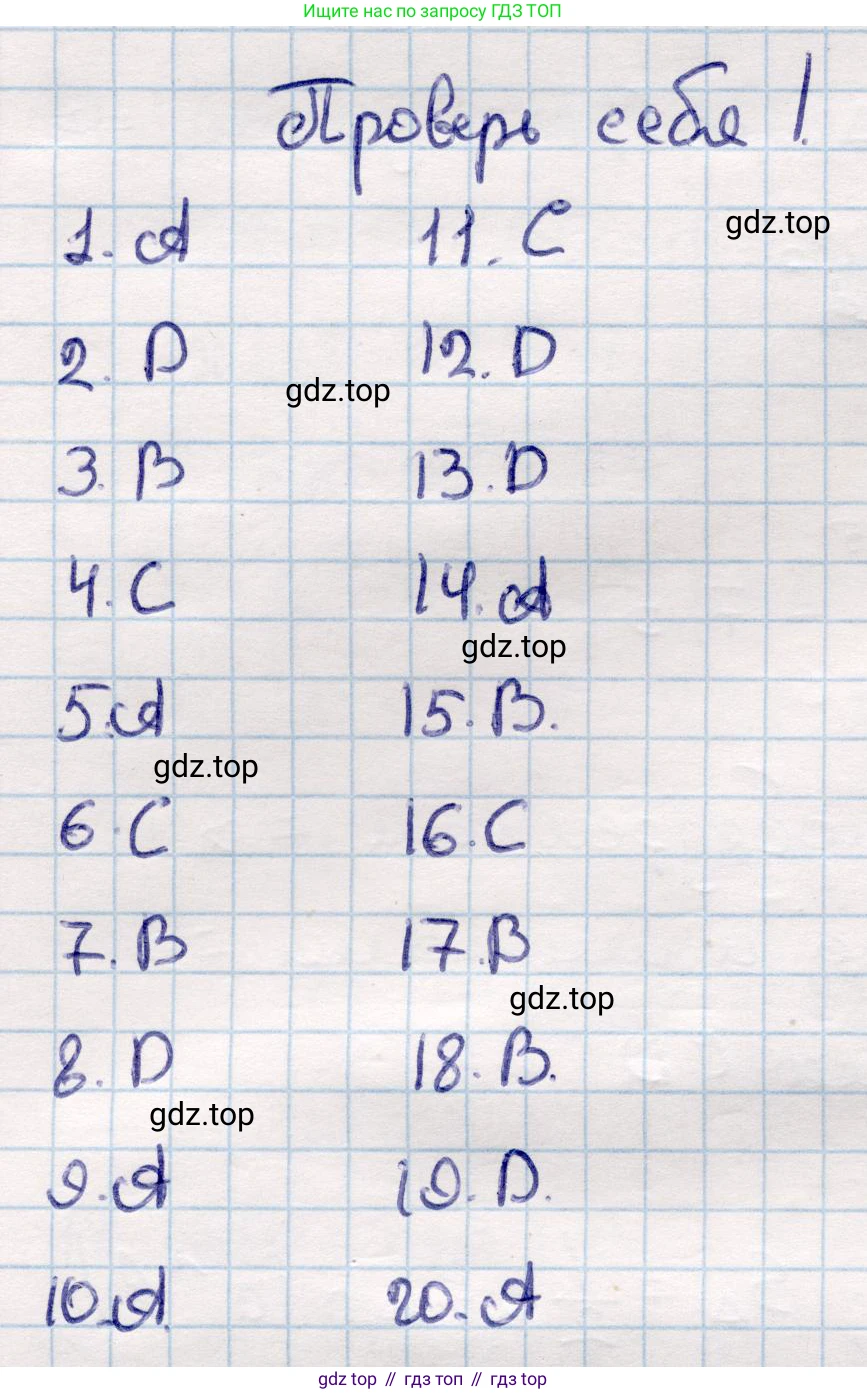 Ищите нас по запросу ГДЗ ТОП
Проверь себя!
1. A
11. C
gdz.top
2. D
12. D
gdz.top
3. B
13. D
4. C
14. A
gdz.top
5. A
15. B.
gdz.top
6. C
16. C
7. B
17. B
gdz.top
8. D
18. B.
gdz.top
9. A
19. D.
10. A.
20. A
gdz top // гдз топ // гдз top